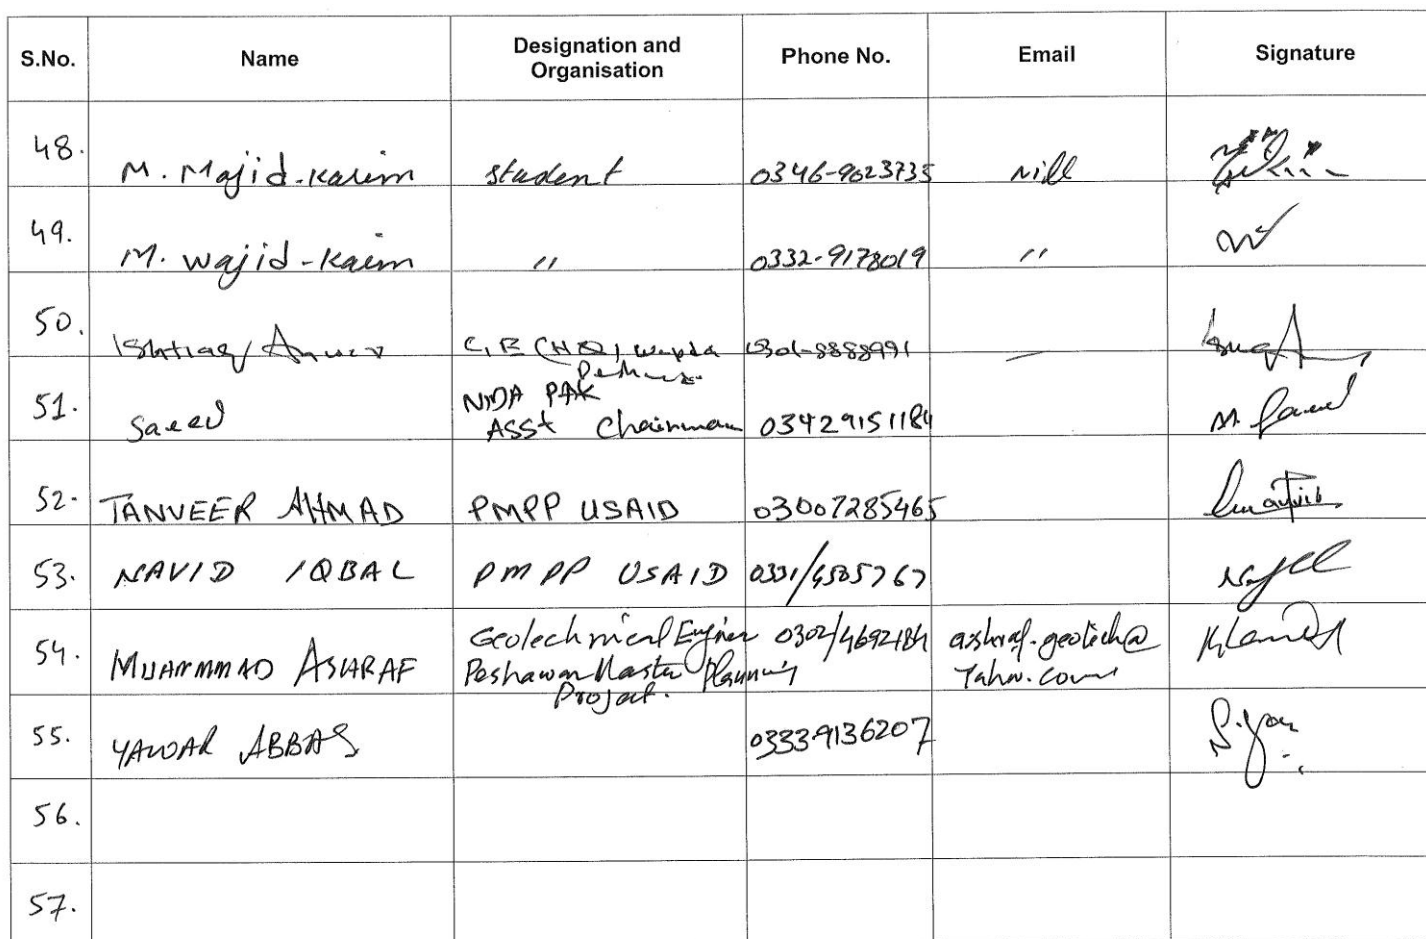 S.No. Name Designation and Organisation Phone No. Email Signature
48. M. Majid-Karim student 0346-9023735 Nill
49. M. Wajid-Kaim " 0332-9178019 "
50. Ishtiaq Anwar C,E (HQ) Wapda 0301-8888991 —
51. Saeed NIDA PAK
Asst Chairman 03429151184
52. TANVEER AHMAD PMPP USAID 03007285465
53. NAVID IQBAL PMPP USAID 0331/4585767
54. MUAMMAD ASHRAF Geotechnical Enginer 0302/4692184 ashraf.geotech@
Peshawar Master Planning Yahoo.com
Project.
55. YAWAR ABBAS 03339136207
56.
57.